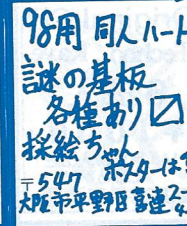 98用 同人ハード
謎の基板
各種あり
採絵ちゃん
ポスターは
〒547
大阪市平野区喜連2-